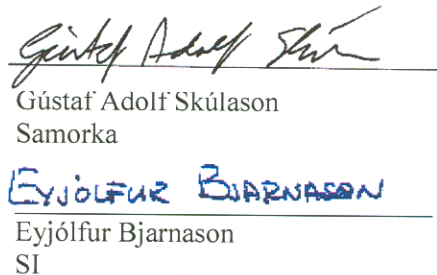 Gústaf Adolf Skú
Gústaf Adolf Skúlason
Samorka
EYJÓLFUR BJARNASON
Eyjólfur Bjarnason
SI